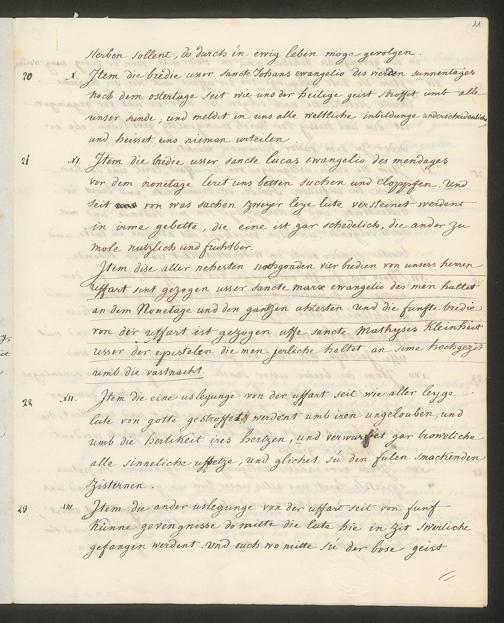 11
sterben sollent, do durch in ewig leben moge gevolgen.
20 X. Jtem die bredie usser sancte Johans ewangelio des vierden sunnentages
noch dem ostertage seit wie uns der heilige geist stroffet umb alle
unser sunde, und meldet in uns alle weltliche inbildunge underscheidenliche,
und heisset uns nieman urteilen.
21 XI. Jtem die bredie usser sancte lucas ewangelio des mendages
vor dem nonetage leret uns betten suchen und cloppfen. Und
seit von was sachen zweyer leye lute versteinet werdent
in irme gebette, die eine ist gar schedelich, die ander zu
mole nutzlich und fruhtber.
Jtem dise aller nehesten nochgonden vier bredien von unsers herren
uffart sint gezogen usser sancte marx ewangelio des men haltet
an dem Nonetage und den gantzen ahtesten und die funfte bredie
von der uffart ist gezogen usse sancte Mathyses Kleinheit
usser der epistelen die men jerliche haltet an sime hochgezit
umb die vastnacht.
22 XII. Jtem die eine uslegunge von der uffart seit wie aller leyge
lute von gotte gestroffet werdent umb iren ungelouben, und
umb die hertikeit ires hertzen, und verwurffet gar troweliche
alle sinneliche uffsetze, und glichet sü den fulen smackenden
zisternen.
23 XIII. Jtem die ander uslegunge von der uffart seit von funf
Künne gevengnisse do mitte die lute hie in zit swerliche
gefangen werdent. Und ouch wo mitte sü der bose geist